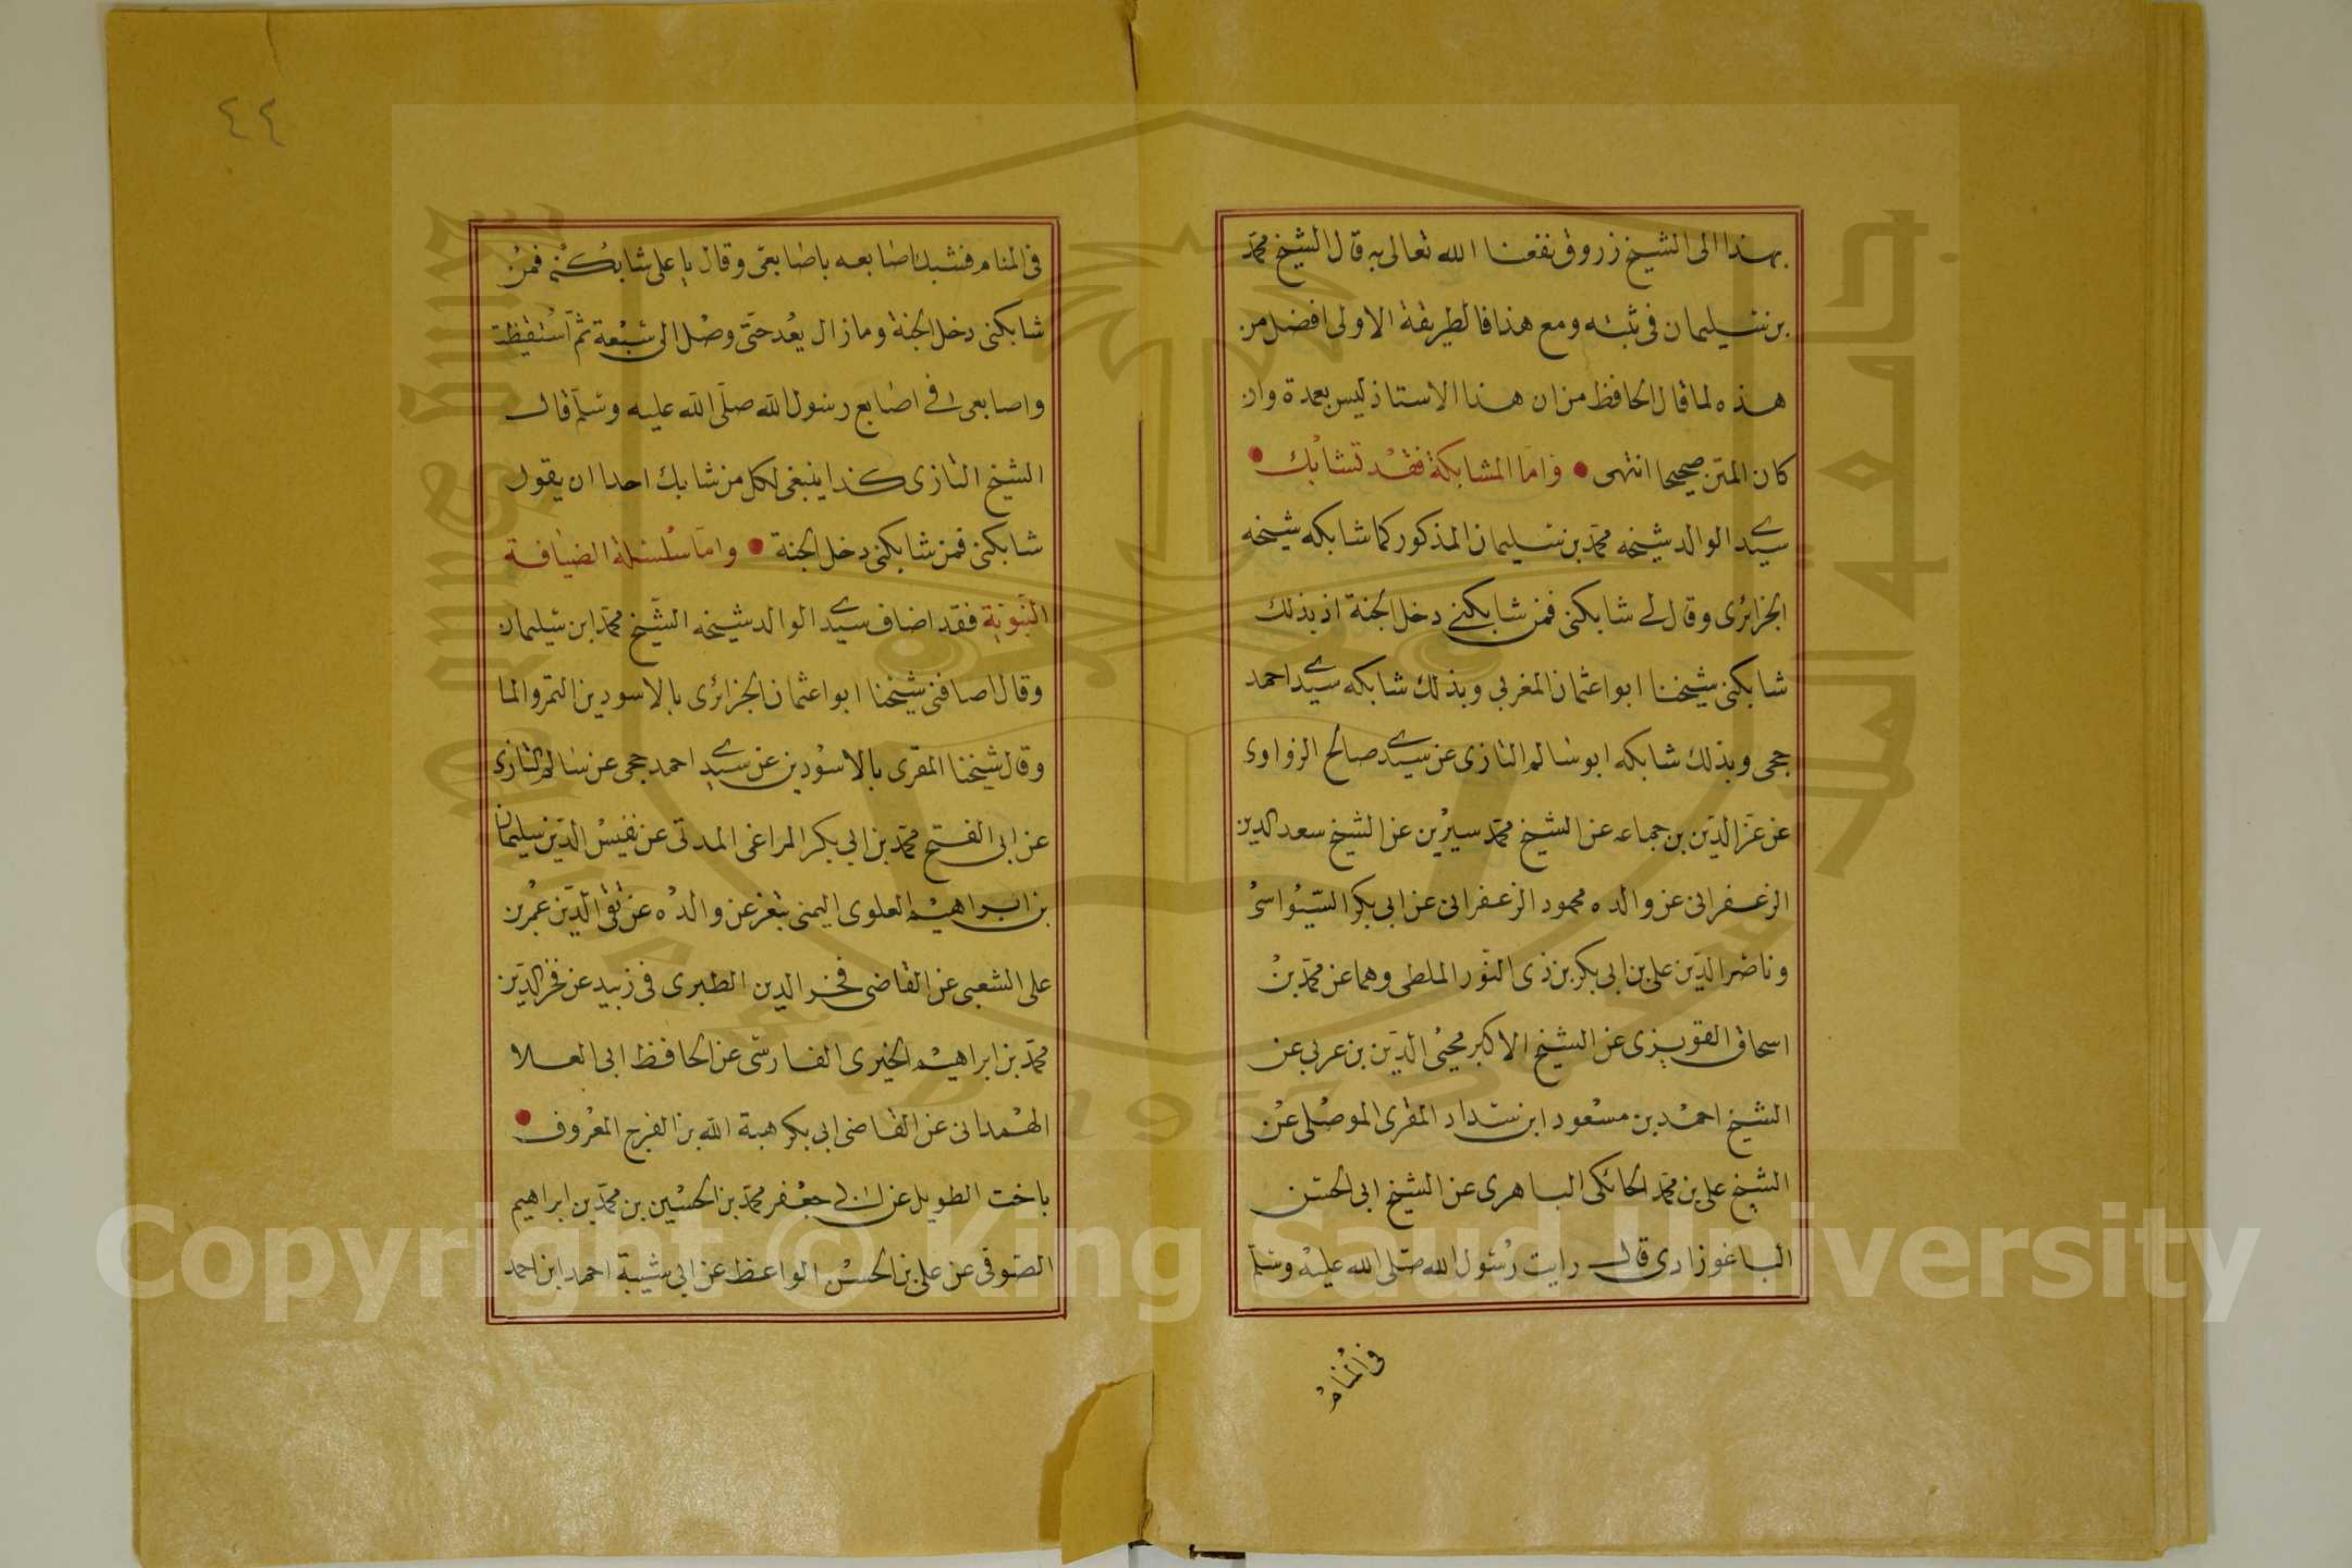 بهذا الى الشيخ زروق نفعنا الله تعالى به قال الشيخ محمد
بن سليمان فى ثبته ومع هذا فالطريقة الاولى افضل من
هذه لما قال الحافظ من ان هذا الاستاذ ليس بعمدة وان
كان المتن صحيحا انتهى • واما المشابكة فقد تشابك •
سيدي الوالد شيخه محمد بن سليمان المذكور كما شابكه شيخه
الجزائرى وقال لي شابكنى فمن شابكني دخل الجنة اذ بذلك
شابكنى شيخنا ابو اعثمان المغربي وبذلك شابكه سيدي احمد
حجى وبذلك شابكه ابو سالم التازى عن سيدي صالح الزواوى
عن عز الدين بن جماعه عن الشيخ محمد سيرين عن الشيخ سعد الدين
الزعفرانى عن والده محمود الزعفرانى عن ابى بكر السيواسى
وناصر الدين على بن ابى بكر بن ذى النور الملطى وهما عن محمد بن
اسحاق القويزى عن الشيخ الاكبر محيى الدين بن عربى عن
الشيخ احمد بن مسعود ابن سداد المقرى الموصلى عن
الشيخ على بن محمد الحائكى الباهرى عن الشيخ ابى الحسن
الباغوزادى قال رايت رسول الله صلى الله عليه وسلم
فى المنام
٤٤
فى المنام فشبك اصابعه باصابعى وقال يا على شابكنى فمن
شابكنى دخل الجنة وما زال يعد حتى وصل الى سبعة ثم استيقظت
واصابعى في اصابع رسول الله صلى الله عليه وسلم قال
الشيخ التازى كذا ينبغى لكل من شابك احدا ان يقول
شابكنى فمن شابكنى دخل الجنة • واما سلسلة الضيافة
النبوية فقد اضاف سيدي الوالد شيخه الشيخ محمد ابن سليمان
وقال اضافنى شيخنا ابو اعثمان الجزائرى بالاسودين التمر والما
وقال شيخنا المقرى بالاسودين عن سيدي احمد حجى عن سالم التازى
عن ابى الفتح محمد بن ابى بكر المراغى المدنى عن نفيس الدين سليمان
بن ابراهيم العلوى اليمنى بتعز عن والده عن تقى الدين عمر بن
على الشعبى عن القاضى فخر الدين الطبرى فى زبيد عن فخر الدين
محمد بن ابراهيم الخيرى الفارسى عن الحافظ ابى العلا
الهمدانى عن القاضى ابى بكر هبة الله بن الفرج المعروف •
باخت الطويل عن ابي جعفر محمد بن الحسين بن محمد بن ابراهيم
الصوفى عن على بن الحسن الواعظ عن ابى شيبة احمد ابن احمد
Copyright © King Saud University